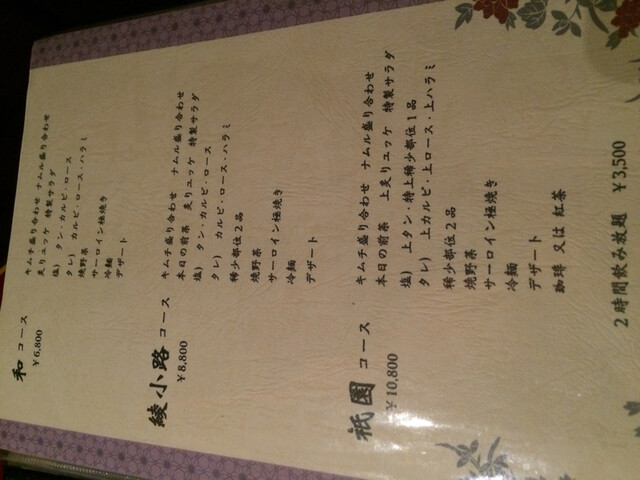 和 コース
¥6,800
キムチ盛り合わせ ナムル盛り合わせ
炙りユッケ 特製サラダ
塩) タン・カルビ・ロース
タレ) カルビ・ロース・ハラミ
焼野菜
サーロイン極焼き
デザート
綾小路 コース
¥8,800
キムチ盛り合わせ ナムル盛り合わせ
本日の前菜 炙りユッケ 特製サラダ
塩) タン・カルビ・ロース
タレ) カルビ・ロース・ハラミ
稀少部位2品
焼野菜
サーロイン極焼き
冷麺
デザート
祇園 コース
¥10,800
キムチ盛り合わせ ナムル盛り合わせ
本日の前菜 上炙りユッケ 特製サラダ
塩) 上タン・特上稀少部位1品
タレ) 上カルビ・上ロース・上ハラミ
稀少部位2品
焼野菜
サーロイン極焼き
冷麺
デザート
珈琲 又は 紅茶
2時間飲み放題 ¥3,500